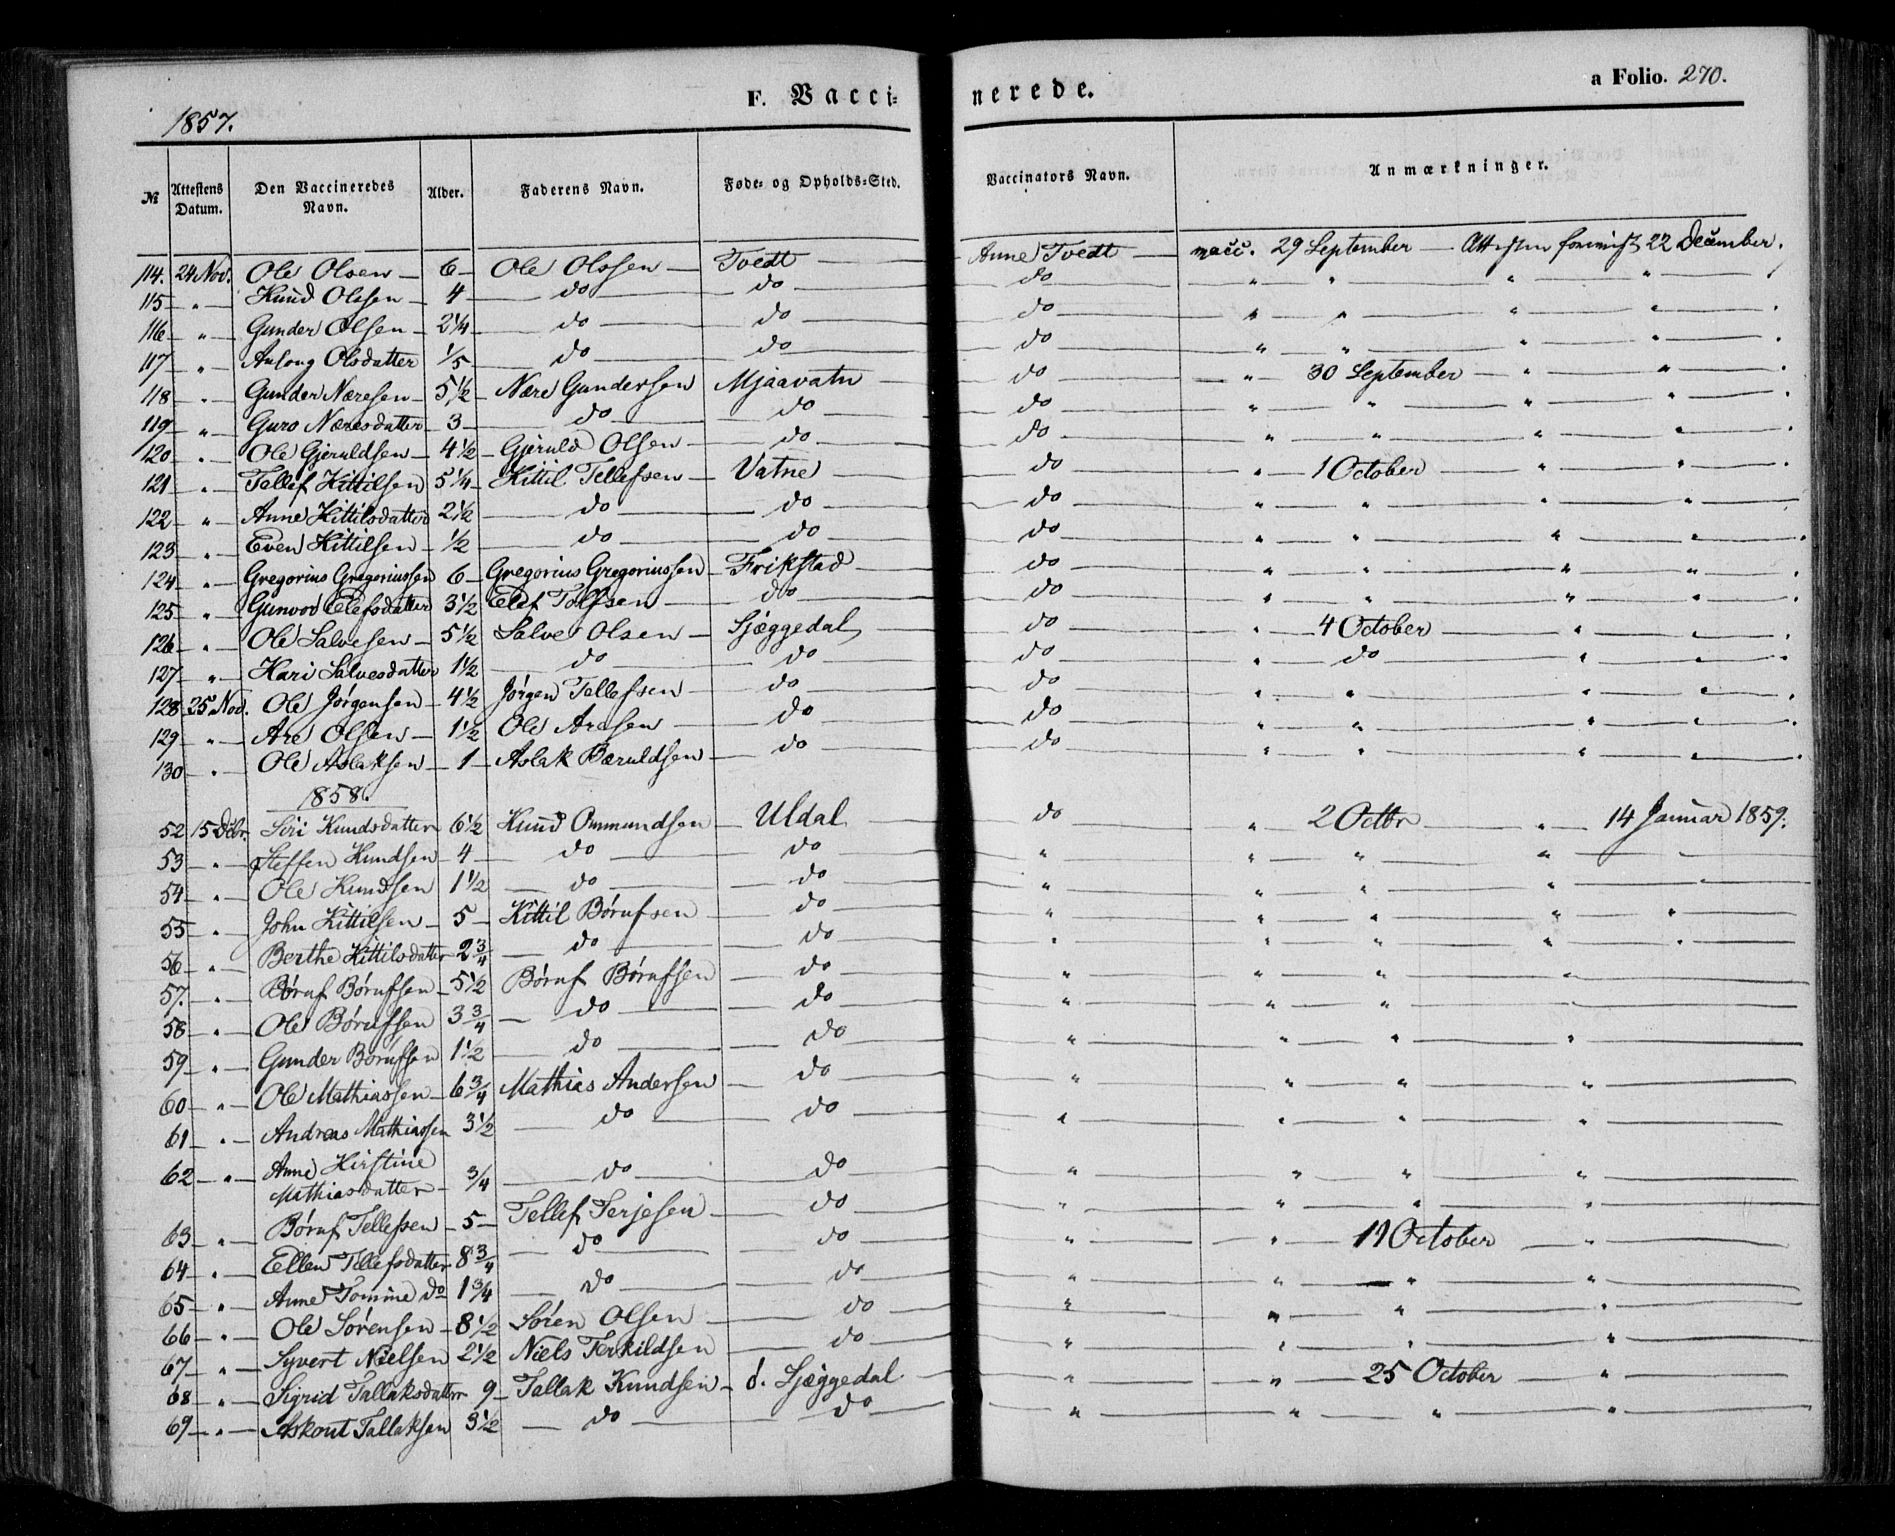 1857.
F. Vacci-
nerede.
a Folio. 270.
№ Attestens Datum. Den Vaccineredes Navn. Alder. Faderens Navn. Føde- og Opholds-Sted. Vaccinators Navn. Anmærkninger.
114. 24 Nov. Ole Olsen 6 Ole Olssen Tvedt Anne Tvedt vacc. 29 September 22 December.
115 " Knud Olssen 4 do do do " " " "
116 " Gunder Olsen 2 1/4 do do do " " " "
117 " Aslong Olsdatter 1/5 do do do " " " "
118 " Gunder Næresen 5 1/2 Nære Gundersen Mjaavatn do " 30 September " "
119 " Guro Næresdatter 3 do do do " " " "
120 " Ole Gjeruldsen 4 1/2 Gjeruld Olsen do do " " " "
121 " Tellef Kittilsen 5 1/4 Kittil Tellefsen Vatne do " 1 October " "
122 " Anne Kittilsdatter 2 1/2 do do do " " " "
123 " Even Kittilsen 1/2 do do do " " " "
124 " Gregorius Gregoriussen 6 Gregorius Gregoriussen Frikstad do " " " "
125 " Gunvor Elefsdatter 3 1/2 Elef Tolfsen do do " " " "
126 " Ole Salvesen 5 1/2 Salve Olsen Sjæggedal do " 4 October " "
127 " Kari Salvesdatter 1 1/2 do do do " do " "
128 25 Nov. Ole Jørgensen 4 1/2 Jørgen Tellefsen do do " " " "
129 " Are Olsen 1 1/2 Ole Aresen do do " " " "
130 " Ole Aslaksen 1 Aslak Bæruldsen do do " " " "
1858.
52 15 Dcbr. Siri Knudsdatter 6 1/2 Knud Ommundsen Uldal do " 2 Octbr " 14 Januar 1859.
53 " Steffen Knudsen 4 do do " " " "
54 " Ole Knudsen 1 1/2 do do " " " "
55 " John Kittilsen 5 Kittil Børufsen do " " " " "
56 " Berthe Kittilsdatter 2 3/4 do do " " " " "
57. " Børuf Børufsen 5 1/2 Børuf Børufsen do " " " "
58 " Ole Børufsen 3 3/4 do do " " "
59 " Gunder Børufsen 1 1/2 do do " " " "
60 " Ole Mathiassen 6 3/4 Mathias Andersen do " " " "
61 " Andreas Mathiassen 3 1/2 do do " " " "
62 " Anne Kirstine
Mathiasdatter 3/4 do do " " " "
63 " Børuf Tellefsen 5 Tellef Terjesen do " " " "
64 " Ellen Tellefsdatter 8 3/4 do do " " 11 October "
65 " Anne Tomine do 1 3/4 do do " " " "
66 " Ole Sørensen 8 1/2 Søren Olsen do " " " "
67 " Syvert Nielsen 2 1/2 Niels Terkildsen do " " " "
68 " Sigrid Tallaksdatter 9 Tallak Knudsen d. Sjæggedal " " 25 October "
69 " Askout Tallaksen 3 1/2 do do " " " "